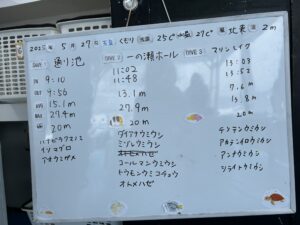 2025年 5月 27日 天気 くもり 気温 25℃ 水温 27℃ 風 北東 波 2m
DIVE 1 通り池
DIVE 2 一の瀬ホール
DIVE 3 マリンレイク
IN 9:10
OUT 9:56
AVE 15.1m
MAX 27.4m
20m
ハナヒラクマノミ
イソマグロ
アオウミガメ
11:02
11:48
13.1m
27.9m
20m
ダイアナウミウシ
ミゾレウミウシ
オトヒメハゼ
コールマンウミウシ
トウモンウミコチョウ
オトメハゼ
13:03
13:52
7.6m
13.8m
20m
テンテンウミウシ
アカテンイロウミウシ
アンナウミウシ
シライトウミウシ